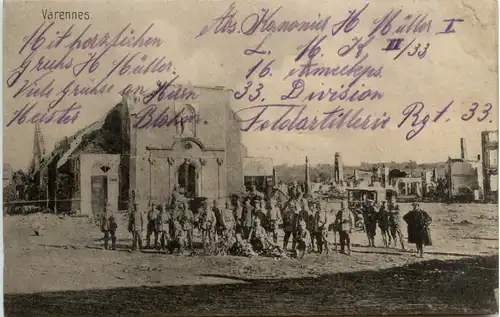 Varennes.
Mit herzlichen
Gruß H Müller.
Viele grüße an Herrn
Abs Kanonier H Müller I
L. M. K. III/33
16. Armeekps.
33. Division
Feldartillerie Rgt. 33.